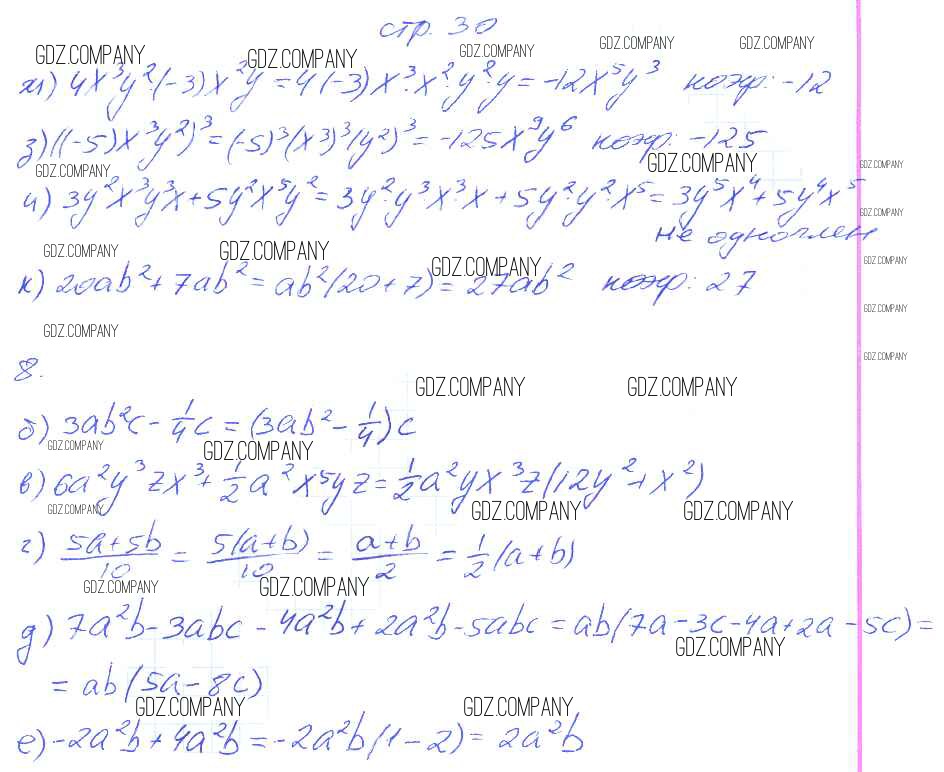 стр. 30
GDZ.COMPANY GDZ.COMPANY GDZ.COMPANY GDZ.COMPANY GDZ.COMPANY
ж) 4x³y²·(-3)x²y = 4·(-3)x³·x²·y²·y = -12x⁵y³ коэф: -12
з) ((-5)x³y²)³ = (-5)³(x³)³(y²)³ = -125x⁹y⁶ коэф: -125
GDZ.COMPANY GDZ.COMPANY GDZ.COMPANY
и) 3y²x³y³x + 5y²x⁵y² = 3y²·y³·x³·x + 5y²·y²·x⁵ = 3y⁵x⁴ + 5y⁴x⁵
GDZ.COMPANY
не одночлен
GDZ.COMPANY GDZ.COMPANY GDZ.COMPANY GDZ.COMPANY
к) 20ab² + 7ab² = ab²(20+7) = 27ab² коэф: 27
GDZ.COMPANY
GDZ.COMPANY GDZ.COMPANY
8.
GDZ.COMPANY GDZ.COMPANY
б) 3ab²c - 1/4 c = (3ab² - 1/4)c
GDZ.COMPANY GDZ.COMPANY
в) 6a²y³zx³ + 1/2 a²x⁵yz = 1/2 a²yx³z(12y² + x²)
GDZ.COMPANY GDZ.COMPANY GDZ.COMPANY
г) (5a+5b)/10 = 5(a+b)/10 = (a+b)/2 = 1/2 (a+b)
GDZ.COMPANY GDZ.COMPANY
д) 7a²b - 3abc - 4a²b + 2a²b - 5abc = ab(7a - 3c - 4a + 2a - 5c) =
GDZ.COMPANY
= ab(5a - 8c)
GDZ.COMPANY GDZ.COMPANY
е) -2a²b + 4a²b = -2a²b(1-2) = 2a²b